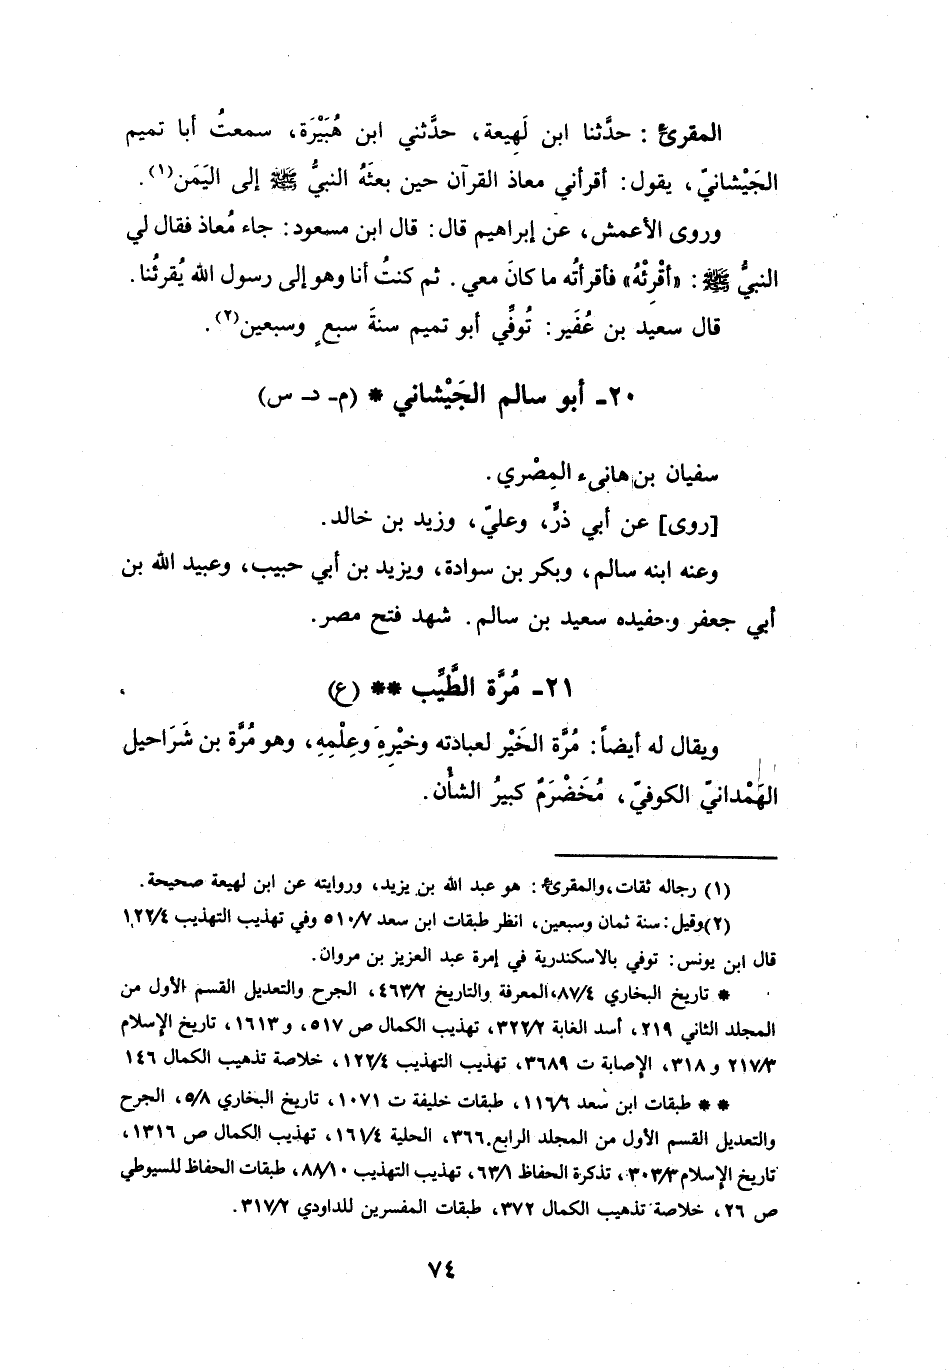 المقرئ : حدَّثنا ابن لَهِيعة، حدَّثني ابن هُبَيْرَة، سمعتُ أبا تميم
الجَيْشانيّ، يقول: أقرأني معاذ القرآن حين بعثَهُ النبيُّ ﷺ إلى اليَمَن(١).
وروى الأعمش، عن إبراهيم قال: قال ابن مسعود: جاء مُعاذ فقال لي
النبيُّ ﷺ: «أقْرِئْهُ» فأقرأتُه ما كانَ معي. ثم كنتُ أنا وهو إلى رسول الله يُقرئُنا.
قال سعيد بن عُفَير: تُوفِّي أبو تميم سنةَ سبعٍ وسبعين(٢).
٢٠- أبو سالم الجَيْشاني * (م- د- س)
سفيان بن هانىء المِصْري.
[روى] عن أبي ذرٍّ، وعليّ، وزيد بن خالد.
وعنه ابنه سالم، وبكر بن سوادة، ويزيد بن أبي حبيب، وعبيد الله بن
أبي جعفر وحفيده سعيد بن سالم. شهد فتح مصر.
٢١- مُرَّة الطَّيِّب ** (ع)
ويقال له أيضاً: مُرَّة الخَيْر لعبادته وخيْرِهِ وعِلْمِهِ، وهو مُرَّة بن شَرَاحيل
الهَمْدانيّ الكوفيّ، مُخَضْرَمٌ كبيرُ الشأن.
(١) رجاله ثقات، والمقرئ: هو عبد الله بن يزيد، وروايته عن ابن لهيعة صحيحة.
(٢) وقيل: سنة ثمان وسبعين، انظر طبقات ابن سعد ٥١٠/٧ وفي تهذيب التهذيب ١٢٢/٤،
قال ابن يونس: توفي بالاسكندرية في إمرة عبد العزيز بن مروان.
* تاريخ البخاري ٨٧/٤، المعرفة والتاريخ ٤٦٣/٢، الجرح والتعديل القسم الأول من
المجلد الثاني ٢١٩، أسد الغابة ٣٢٢/٢، تهذيب الكمال ص ٥١٧، و ١٦١٣، تاريخ الإسلام
٢١٧/٣ و ٣١٨، الإصابة ت ٣٦٨٩، تهذيب التهذيب ١٢٢/٤، خلاصة تذهيب الكمال ١٤٦
** طبقات ابن سعد ١١٦/٦، طبقات خليفة ت ١٠٧١، تاريخ البخاري ٥/٨، الجرح
والتعديل القسم الأول من المجلد الرابع ٣٦٦، الحلية ١٦١/٤، تهذيب الكمال ص ١٣١٦،
تاريخ الإسلام ٣٠٣/٣، تذكرة الحفاظ ٦٣/١، تهذيب التهذيب ٨٨/١٠، طبقات الحفاظ للسيوطي
ص ٢٦، خلاصة تذهيب الكمال ٣٧٢، طبقات المفسرين للداودي ٣١٧/٢.
٧٤